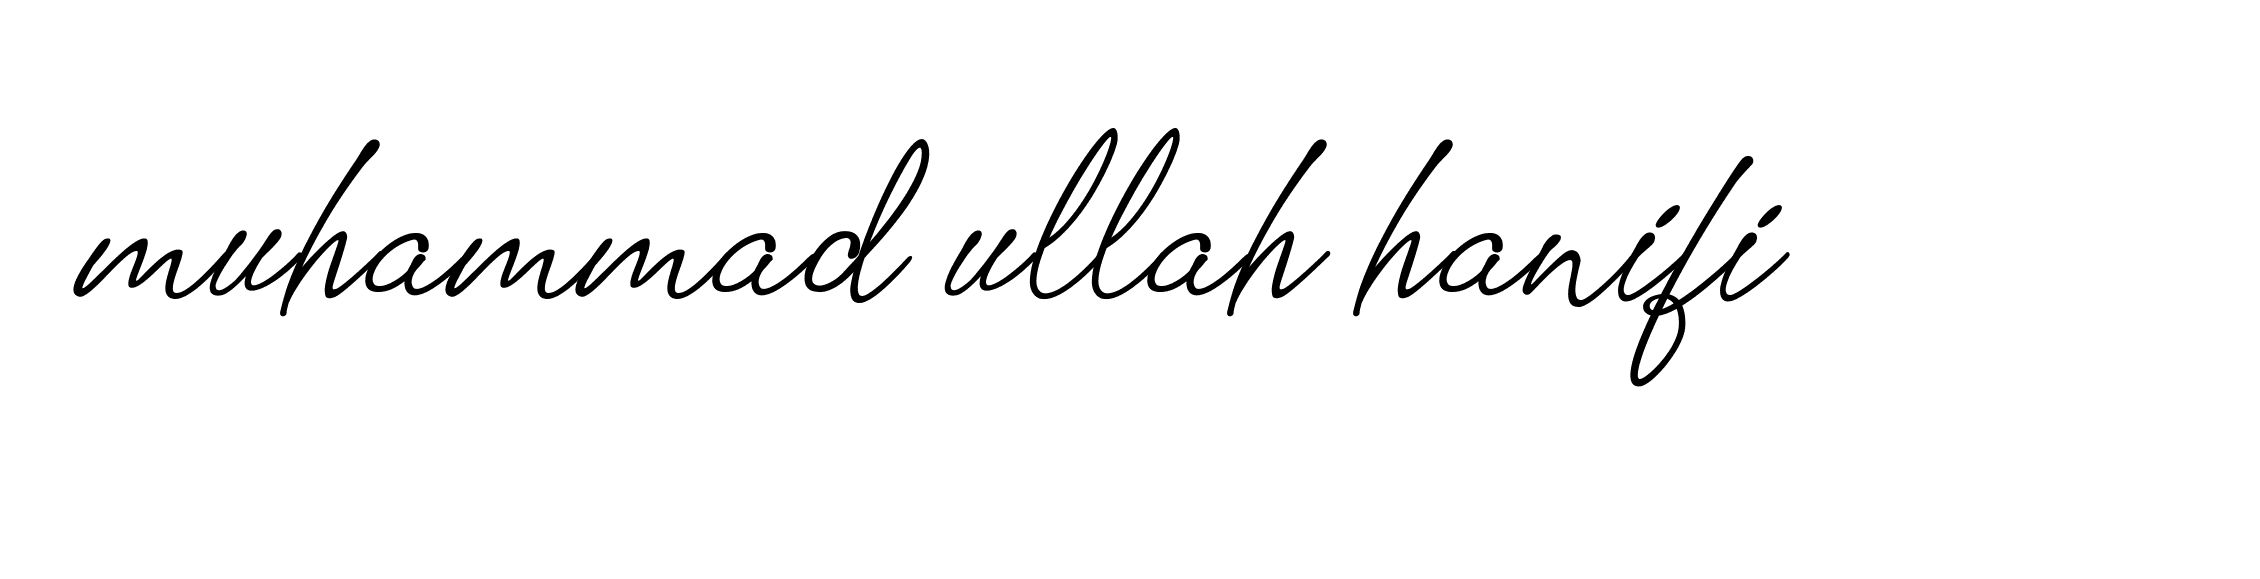 muhammad ullah hanifi